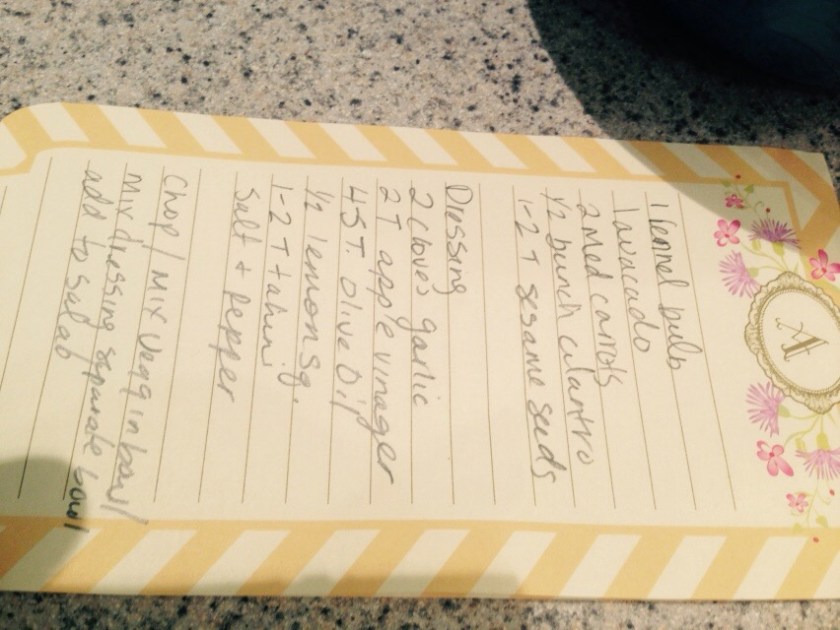 A
1 fennel bulb
1 avacado
2 Med carrots
1/2 bunch cilantro
1-2 T sesame seeds
Dressing
2 cloves garlic
2 T apple vinager
4-5 T. olive Oil
1/2 lemon sq.
1-2 T tahini
Salt + pepper
Chop / Mix Vegg in bowl
Mix dressing separate bowl
add to salad